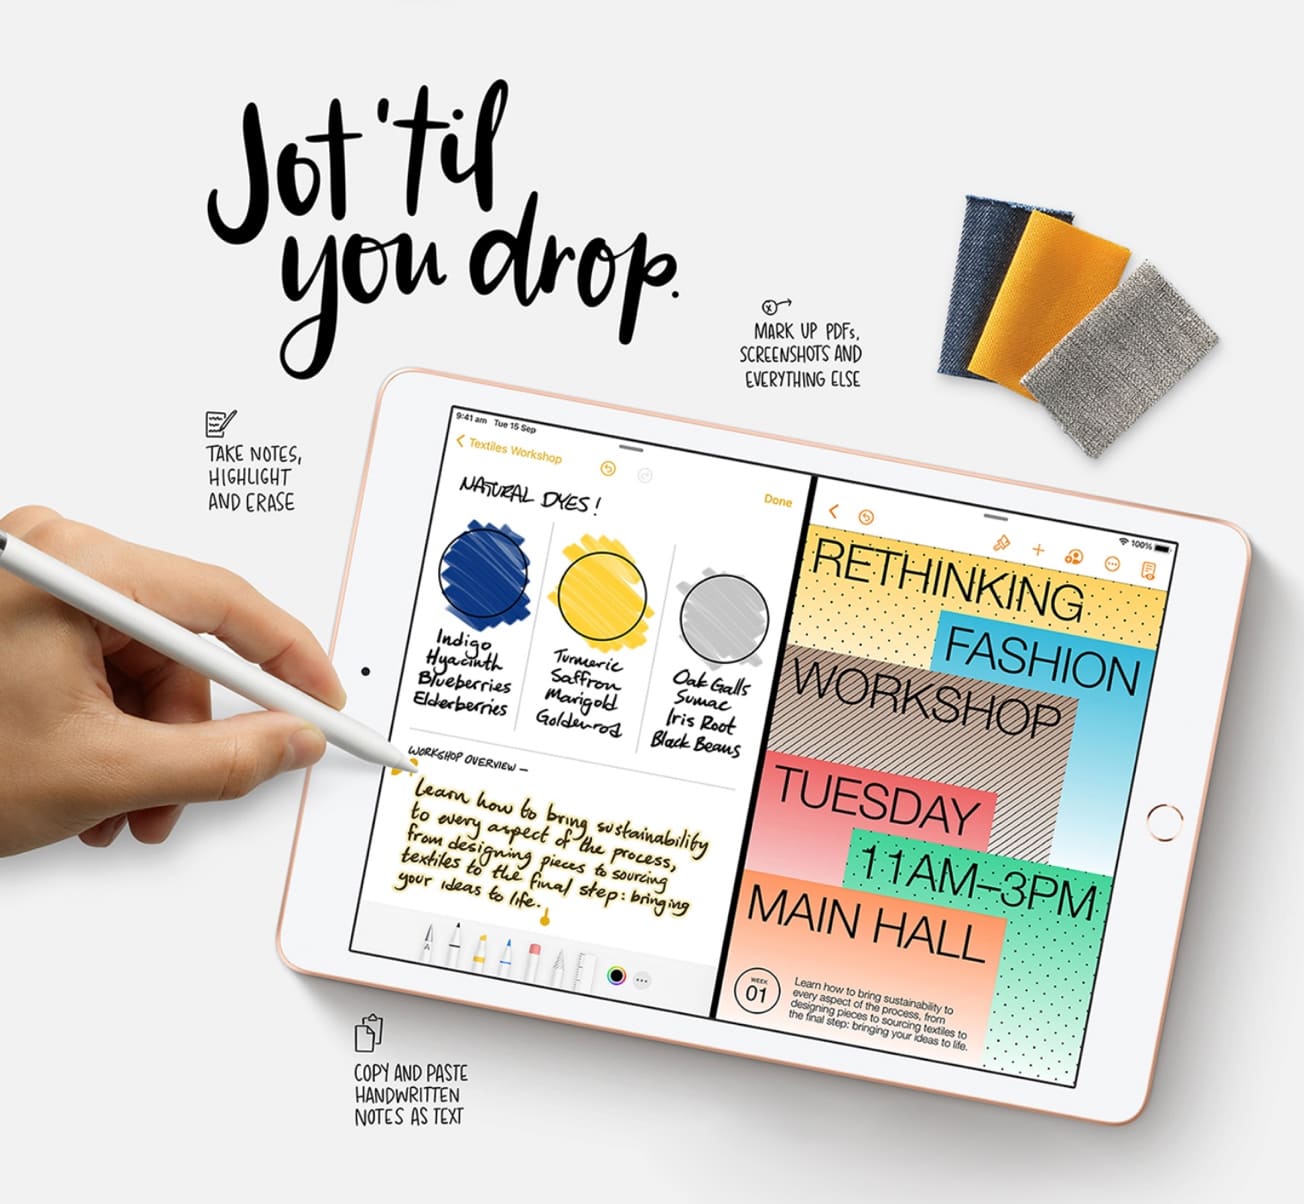 Jot 'til
you drop.
MARK UP PDFs,
SCREENSHOTS AND
EVERYTHING ELSE
TAKE NOTES,
HIGHLIGHT
AND ERASE
9:41 am Tue 15 Sep
Textiles Workshop
Done
NATURAL DYES!
Indigo
Hyacinth
Blueberries
Elderberries
Turmeric
Saffron
Marigold
Goldenrod
Oak Galls
Sumac
Iris Root
Black Beans
WORKSHOP OVERVIEW –
Learn how to bring sustainability
to every aspect of the process,
from designing pieces to sourcing
textiles to the final step: bringing
your ideas to life.
100%
RETHINKING
FASHION
WORKSHOP
TUESDAY
11AM–3PM
MAIN HALL
WEEK
01
Learn how to bring sustainability to
every aspect of the process, from
designing pieces to sourcing textiles to
the final step: bringing your ideas to life.
COPY AND PASTE
HANDWRITTEN
NOTES AS TEXT